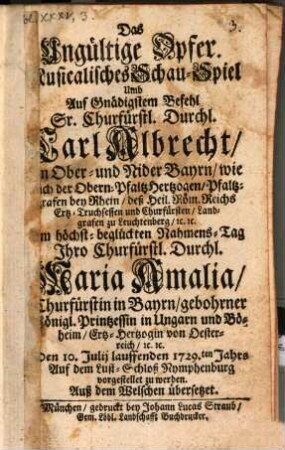 Bl. XXXV, 3
3.
Das
Ungültige Opfer.
Musicalisches Schau-Spiel
Umb
Auf Gnädigstem Befehl
Sr. Churfürstl. Durchl.
Carl Albrecht/
In Ober- und Nider Bayrn/ wie
ich der Obern-Pfaltz Hertzogen/ Pfaltz-
grafen bey Rhein/ deß Heil. Röm. Reichs
Ertz-Truchsessen und Churfürsten/ Land-
grafen zu Leuchtenberg/ ɾc. ɾc.
m höchst-beglückten Nahmens-Tag
Ihro Churfürstl. Durchl.
Maria Amalia/
Churfürstin in Bayrn/ gebohrner
Königl. Printzessin in Ungarn und Bö-
heim/ Ertz-Hertzogin von Oester-
reich/ ɾc. ɾc.
Den 10. Julij lauffenden 1729.ten Jahrs
Auf dem Lust-Schloß Nymphenburg
vorgestellet zu werden.
Auß dem Welschen übersetzet.
München/ gedruckt bey Johann Lucas Straub/
Gem. Löbl. Landschafft Buchdrucker.